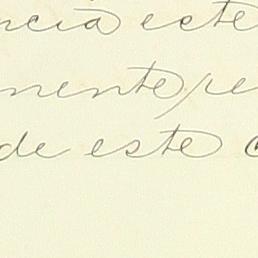 ncia este
mente, re
de este c